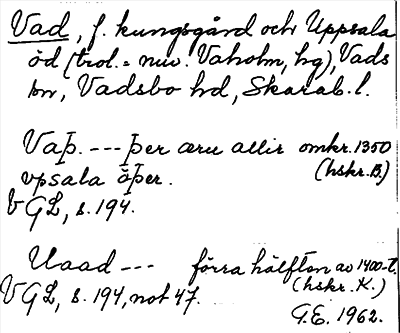 Vad, f. kungsgård och Uppsala
öd (trol. = nuv. Vaholm, hg), Vads
sn, Vadsbo hd, Skarab. l.
Vaþ. --- Þer æru allir omkr. 1350
vpsala öþer. (hskr. B.)
VGL, s. 194.
Uaad --- förra hälften av 1400-t.
VGL, s. 194, not 47. (hskr. K.)
G.E. 1962.